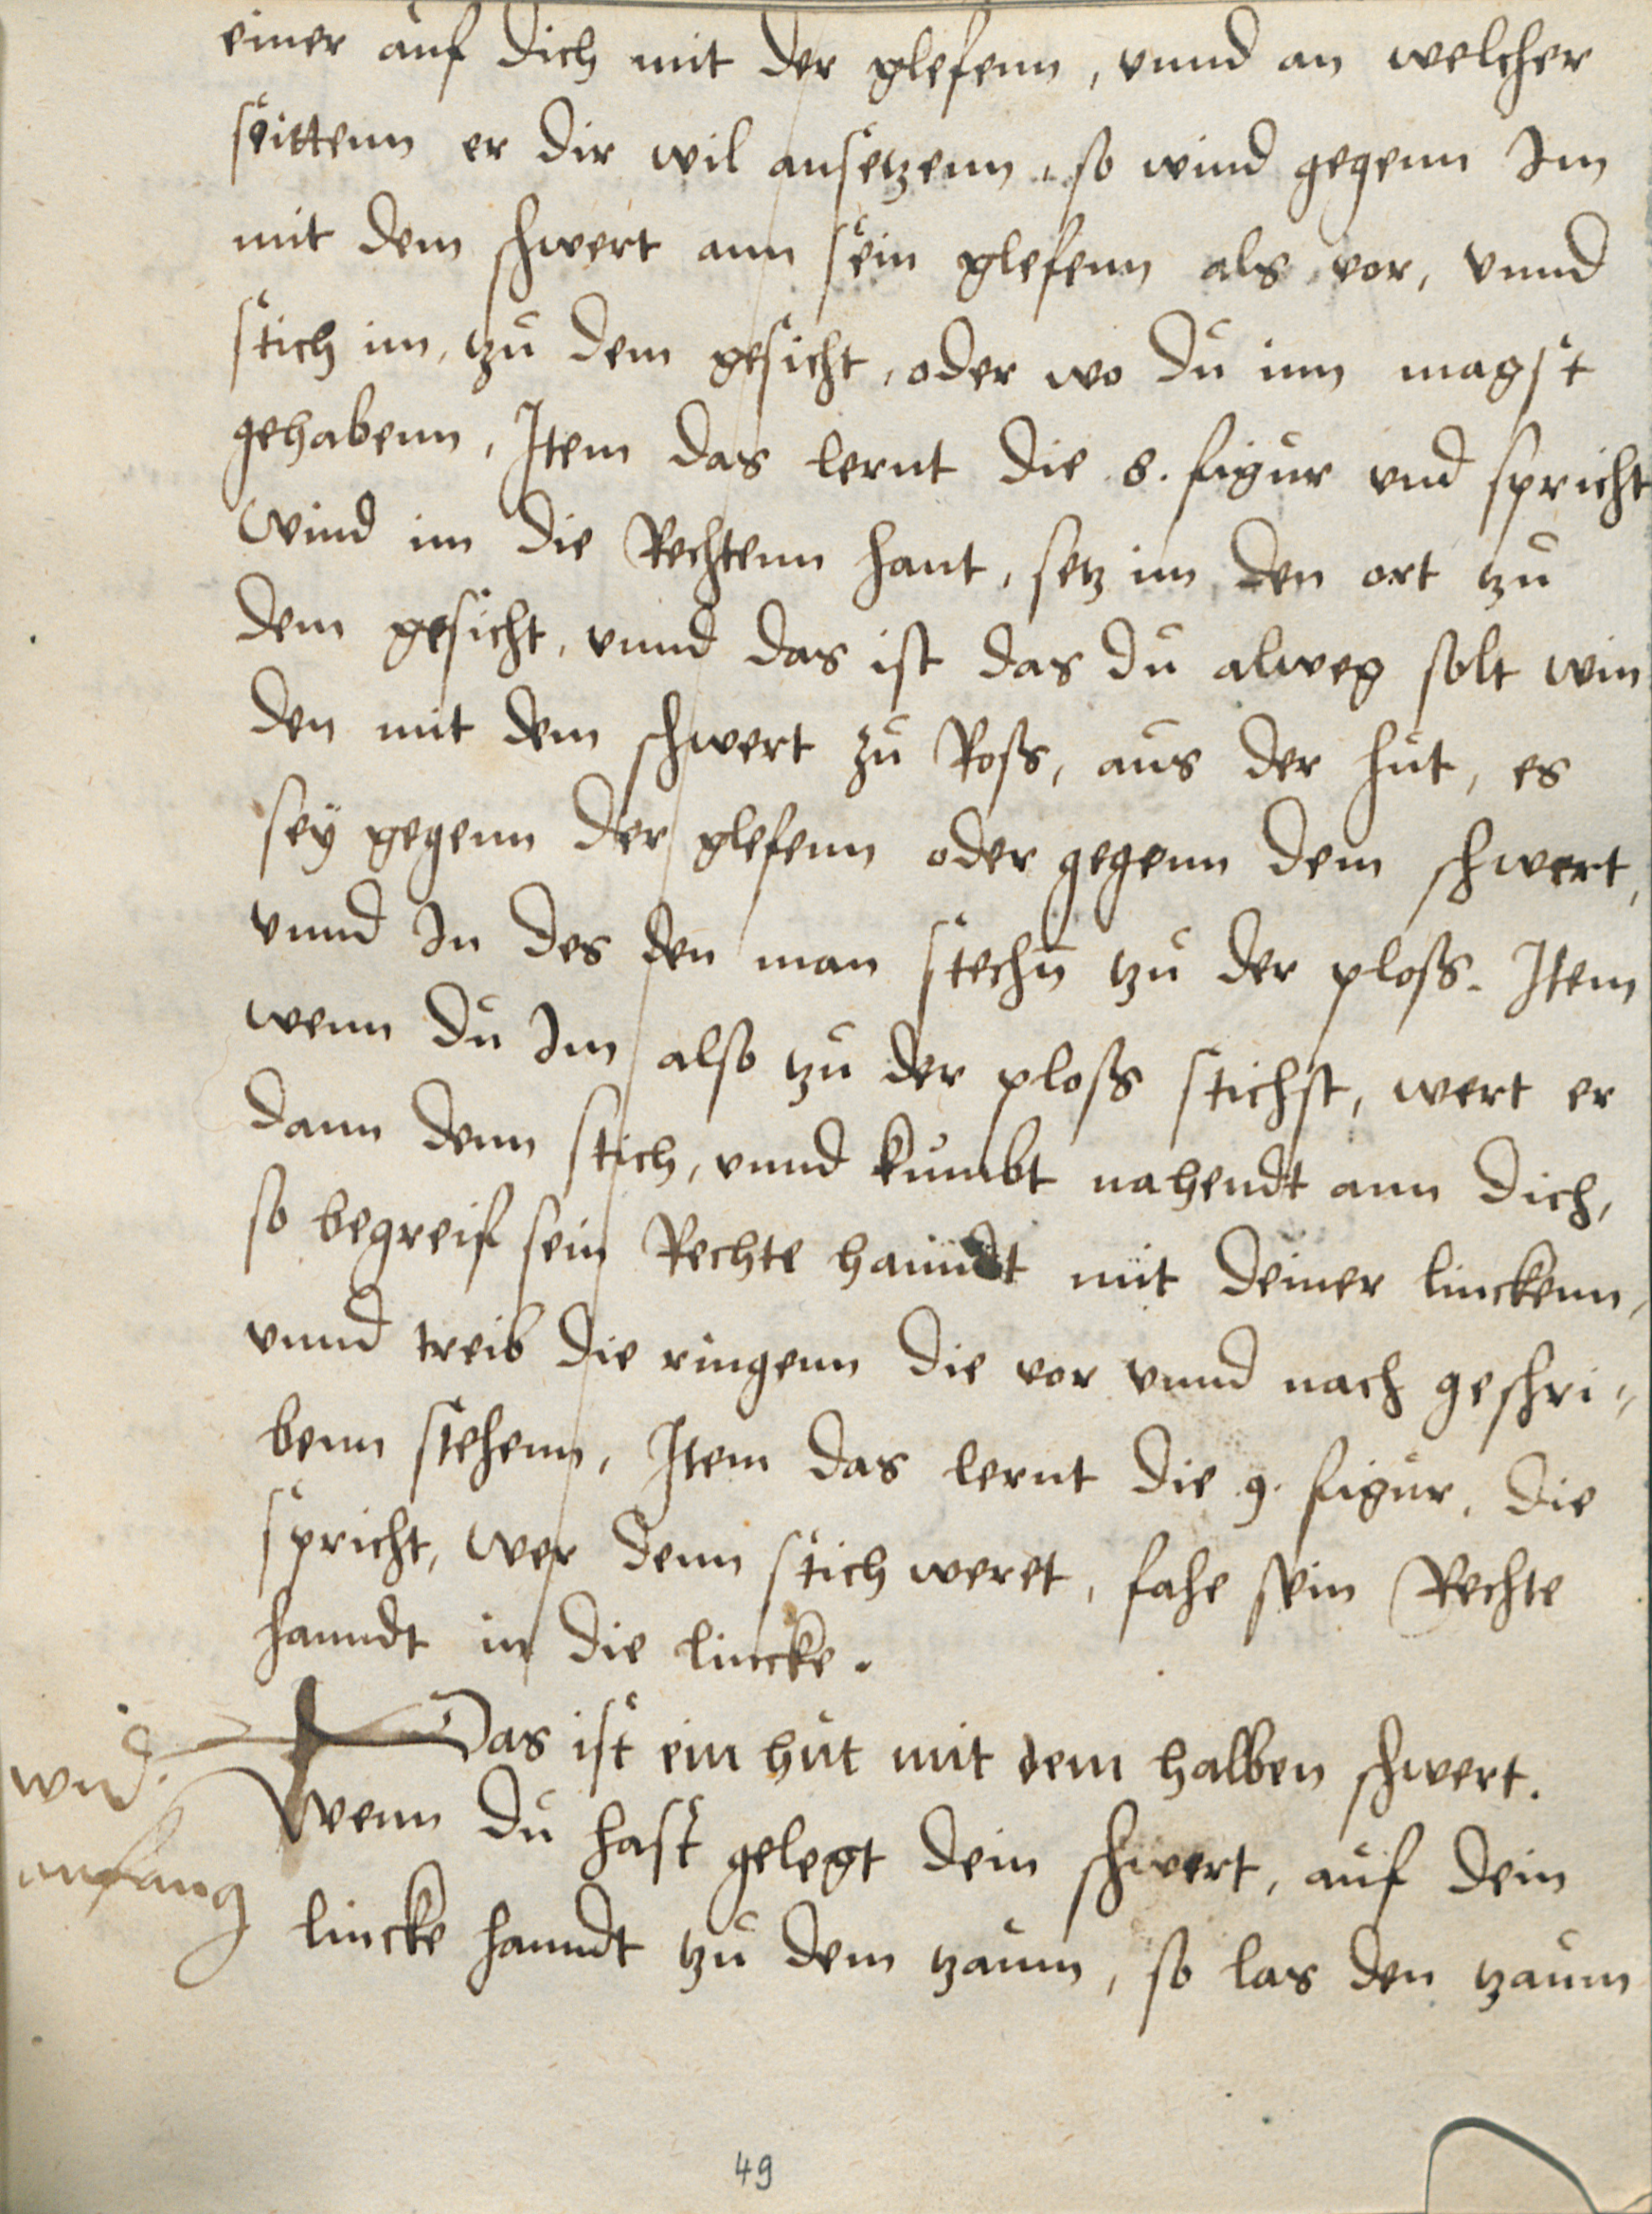 einer auf dich mit der glefenn, vnnd an welcher
seittenn er dir wil ansetzenn, so wind gegenn Im
mit dem schwert ann sein glefenn als vor, vnnd
stich im, tzu dem gesicht, oder wo du inn magst
gehabenn, Item das lernt die 8. figur vnd spricht
Wind im die Rechtenn hant, setz im den ort tzu
dem gesicht, vnnd das ist das du alweg solt win
den mit dem schwert zu Ross, aus der hut, es
seÿ gegenn der glefenn oder gegenn dem schwert,
vnnd In des den man stechn̄ tzu der ploss. Item
wenn du Im also tzu der ploss stichst, wert er
dann denn stich, vnnd kumbt nahendt ann dich,
so begreif sein Rechte hanndt mit deiner linckenn,
vnnd treib die ringenn die vor vnnd nach geschri,,
benn stehenn, Item das lernt die 9. figur, die
spricht, wer denn stich weret, fahe sein Rechte
hanndt in die lincke.
Das ist ein hut mit dem halben schwert.
Wenn du hast gelegt dein schwert, auf dein
lincke hanndt tzu dem tzaum, so las den tzaum
anfang
49